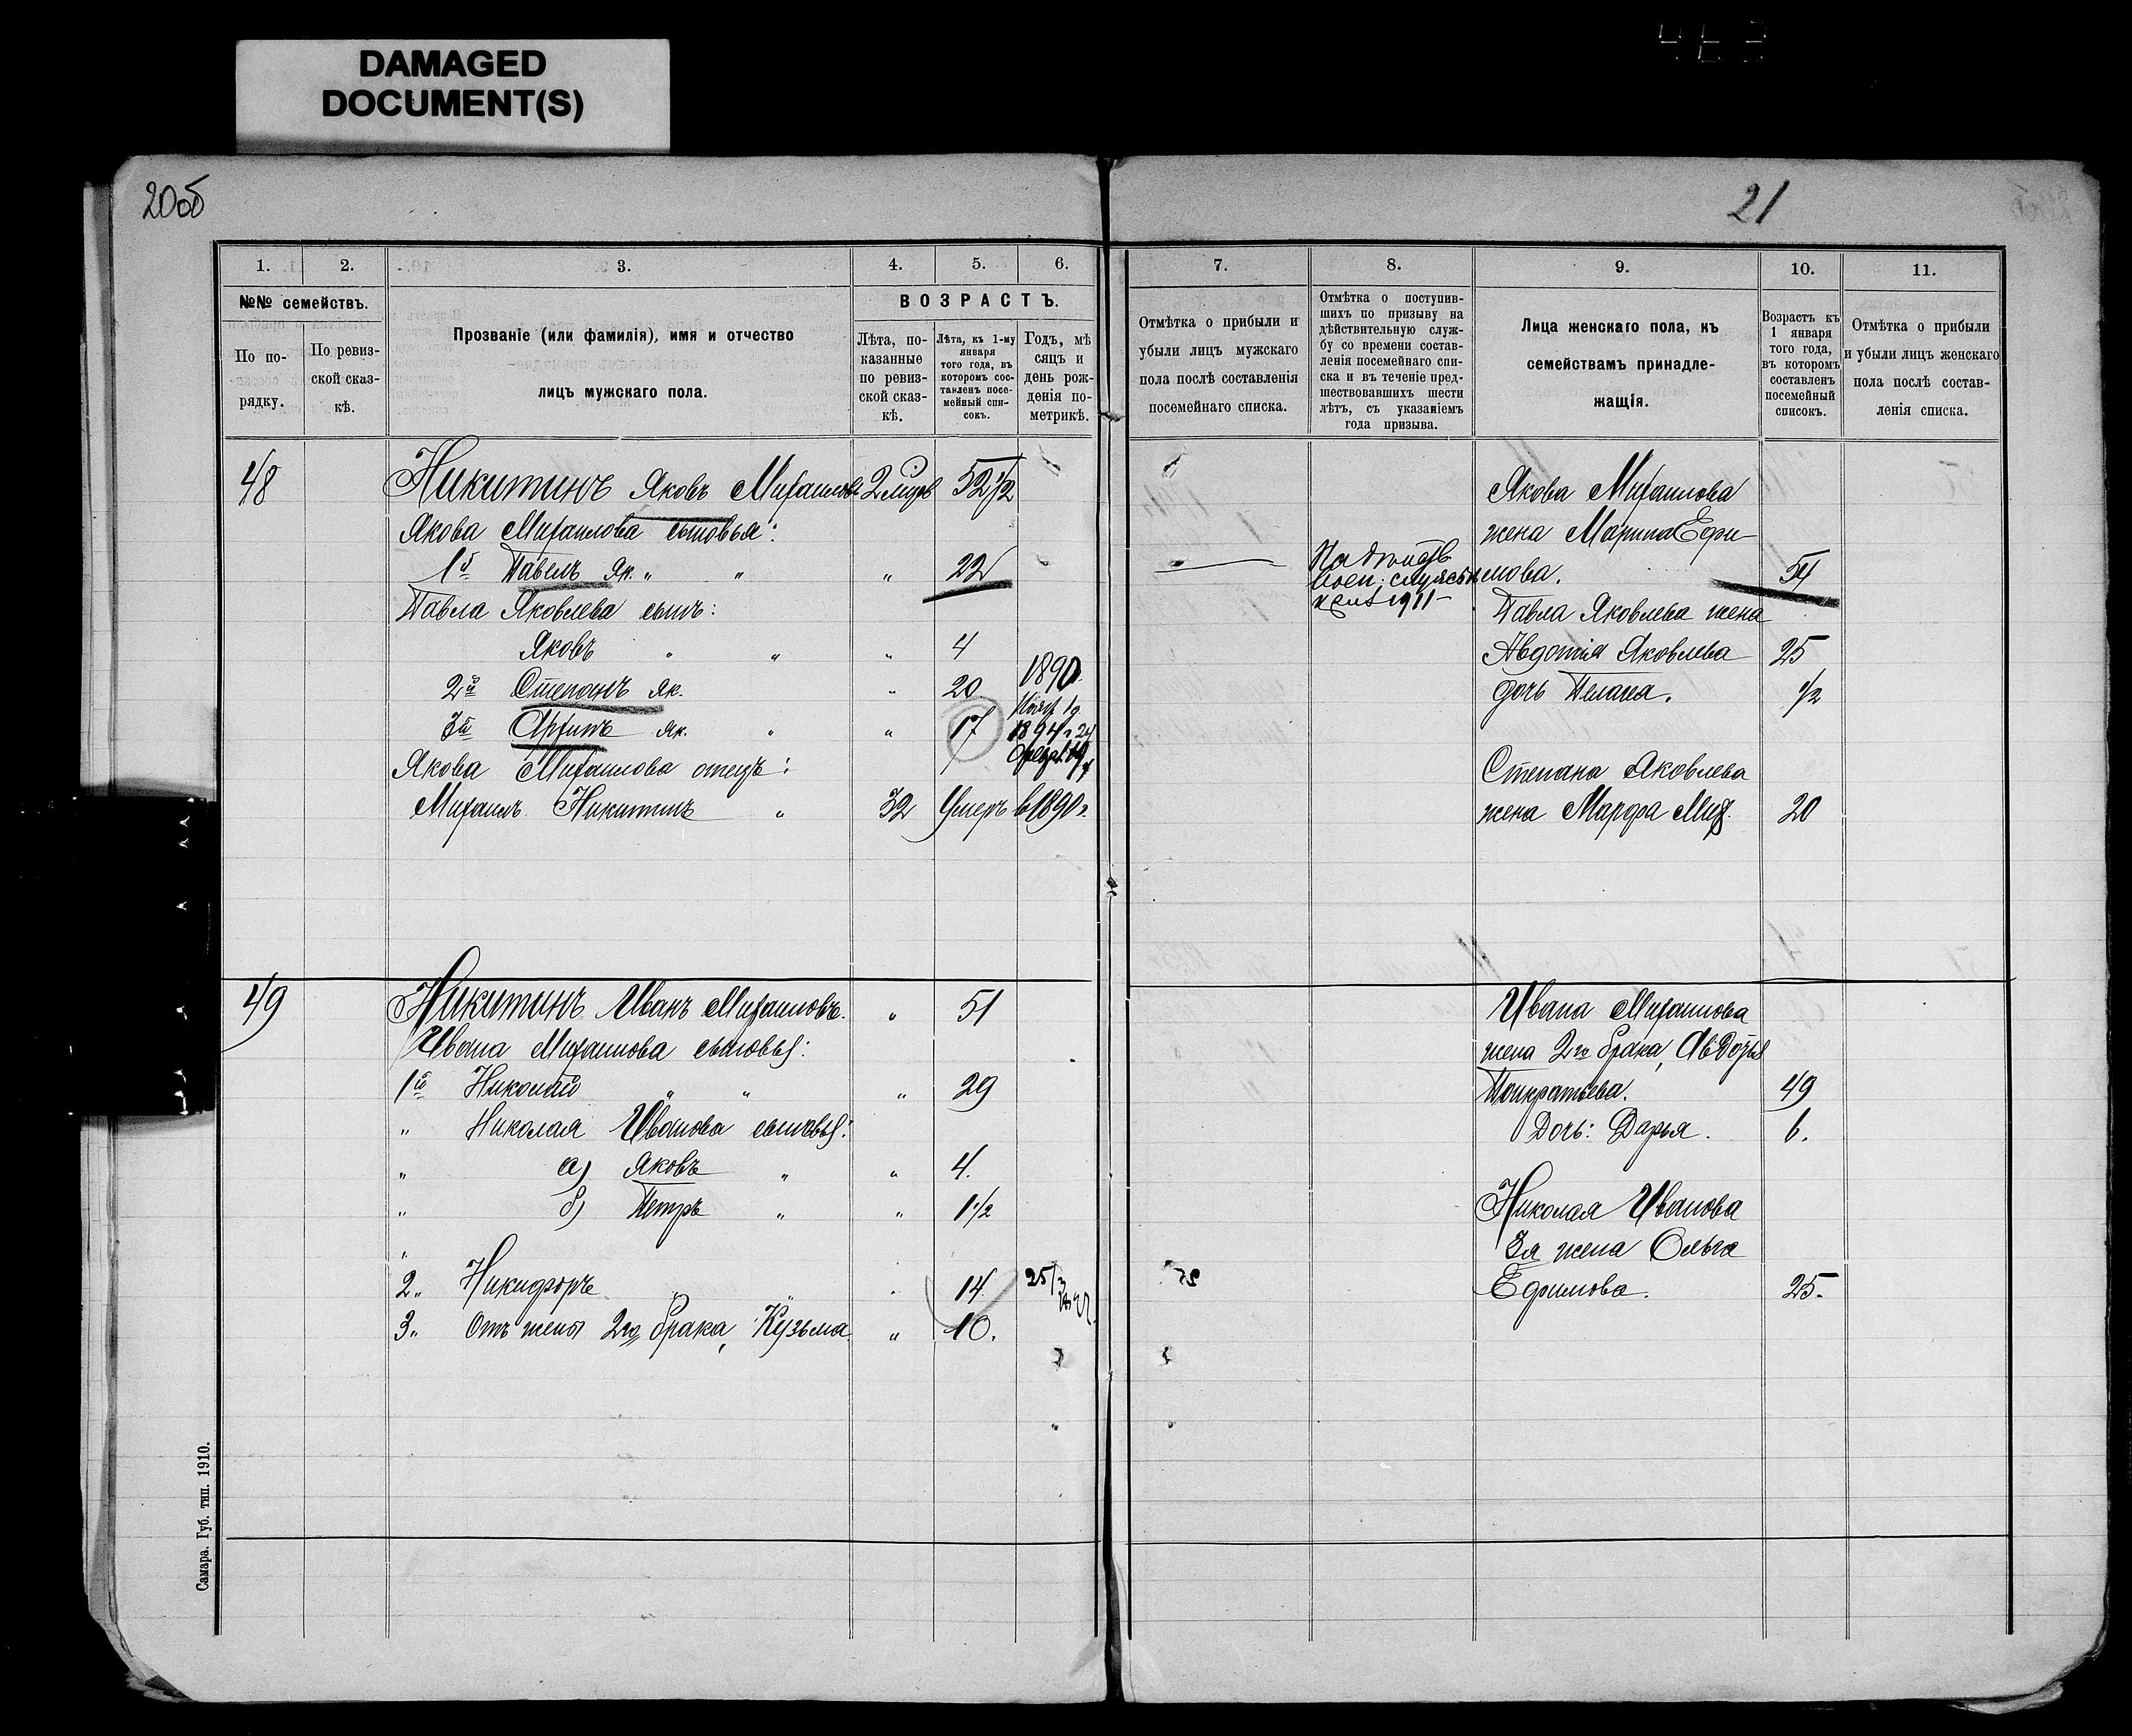 DAMAGED
DOCUMENT(S)
20об
21
1.
2.
3.
4.
5.
6.
№№ семействъ.
По по-
рядку.
По ревиз-
ской сказ-
кѣ.
Прозваніе (или фамилія), имя и отчество
лицъ мужскаго пола.
ВОЗРАСТЪ.
Лѣта, по-
казанные
по ревиз-
ской сказ-
кѣ.
Лѣта, къ 1-му
января
того года, въ
которомъ сос-
тавленъ посе-
мейный спи-
сокъ.
Годъ, мѣ
сяцъ и
день рож-
денія по-
метрикѣ.
7.
8.
9.
10.
11.
Отмѣтка о прибыли и
убыли лицъ мужскаго
пола послѣ составленія
посемейнаго списка.
Отмѣтка о поступив-
шихъ по призыву на
дѣйствительную служ-
бу со времени состав-
ленія посемейнаго спи-
ска и въ теченіе пред-
шествовавшихъ шести
лѣтъ, съ указаніемъ
года призыва.
Лица женскаго пола, къ
семействамъ принадле-
жащія.
Возрастъ къ
1 января
того года,
въ которомъ
составленъ
посемейный
списокъ.
Отмѣтка о прибыли
и убыли лицъ женскаго
пола послѣ состав-
ленія списка.
48 Никитинъ Яковъ Михаиловъ 52 1/2
Якова Михаилова сыновья:
1й Павелъ Як. " " " 22
Павла Яковлева сынъ:
Яковъ " " " 4
2й Степанъ Як. " 20 1890
3й Архипъ Як. " " 17 1894 г. 24
Якова Михаилова отецъ:
Михаилъ Никитинъ " 32 Умеръ в 1890 г.
На дѣйств
воен. службѣ
1911
Якова Михаилова
жена Марина Ефи-
мова. 54
Павла Яковлева жена
Авдотія Яковлева 25
дочь Пелагея. 1/2
Степана Яковлева
жена Марфа Мих. 20
49 Никитинъ Иванъ Михаиловъ. " 51
Ивана Михаилова сыновья:
1й Николай " " " 29
" Николая Иванова сыновья:
" а) Яковъ " " 4.
" б) Петръ " " 1 1/2
"
2" Никифоръ " 14. 25/
3" Отъ жены 2го брака, Кузьма. " 10.
Ивана Михаилова
жена 2го брака, Авдотья
Панкратьева. 49
Дочь: Дарья. 6.
Николая Иванова
3я жена Ольга
Ефимова. 25.
Самара. Губ. тип. 1910.